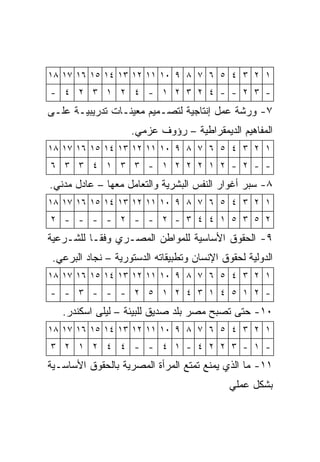 ١ ٢ ٣ ٤ ٥ ٦ ٧ ٨ ٩ ١٠ ١١ ١٢ ١٣ ١٤ ١٥ ١٦ ١٧ ١٨
- ٣ ٢ - - ٤ ٢ ٣ ٢ ١ - ٤ ٢ ١ ٣ ٢ ٤ -
٧- ورشة عمل إنتاجية لتصـميم معينـات تدريبيـة علـى
المفاهيم الديمقراطية – رؤوف عزمي.
١ ٢ ٣ ٤ ٥ ٦ ٧ ٨ ٩ ١٠ ١١ ١٢ ١٣ ١٤ ١٥ ١٦ ١٧ ١٨
- - ٢ - ٢ ١ ٢ ٢ ٢ ١ - ٣ ٣ ١ ٤ ٣ ٣ ٦
٨- سبر أغوار النفس البشرية والتعامل معها – عادل مدني.
١ ٢ ٣ ٤ ٥ ٦ ٧ ٨ ٩ ١٠ ١١ ١٢ ١٣ ١٤ ١٥ ١٦ ١٧ ١٨
٢ ٥ ٣ ٥ ١ ٤ ٤ ٣ - ٢ - - ٢ - - - - ٢
٩- الحقوق الأساسية للمواطن المصـري وفقـا للشـرعية
الدولية لحقوق الإنسان وتطبيقاته الدستورية – نجاد البرعي.
١ ٢ ٣ ٤ ٥ ٦ ٧ ٨ ٩ ١٠ ١١ ١٢ ١٣ ١٤ ١٥ ١٦ ١٧ ١٨
- ٢ ١ ٥ ٤ ١ ٣ ٤ ٢ ١ ٥ ٢ - - - ٣ - -
١٠- حتى تصبح مصر بلد صديق للبيئة – ليلى اسكندر.
١ ٢ ٣ ٤ ٥ ٦ ٧ ٨ ٩ ١٠ ١١ ١٢ ١٣ ١٤ ١٥ ١٦ ١٧ ١٨
- ١ - ٣ ٢ ٢ ٤ - ١ ٤ - - ٤ ٤ ٢ ١ ٢ ٣
١١- ما الذي يمنع تمتع المرأة المصرية بالحقوق الأساسـية
بشكل عملي